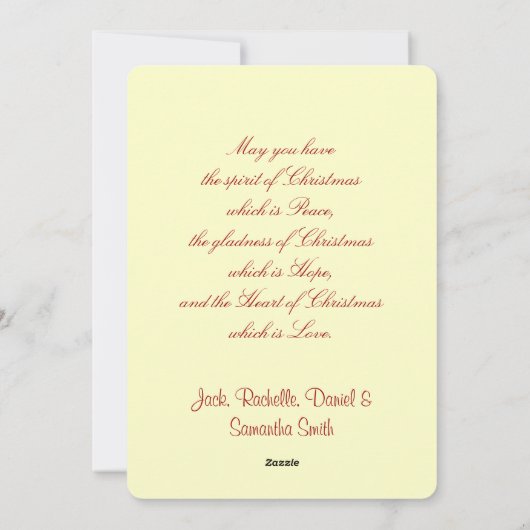 May you have
the spirit of Christmas
which is Peace,
the gladness of Christmas
which is Hope,
and the Heart of Christmas
which is Love.
Jack, Rachelle, Daniel &
Samantha Smith
Zazzle